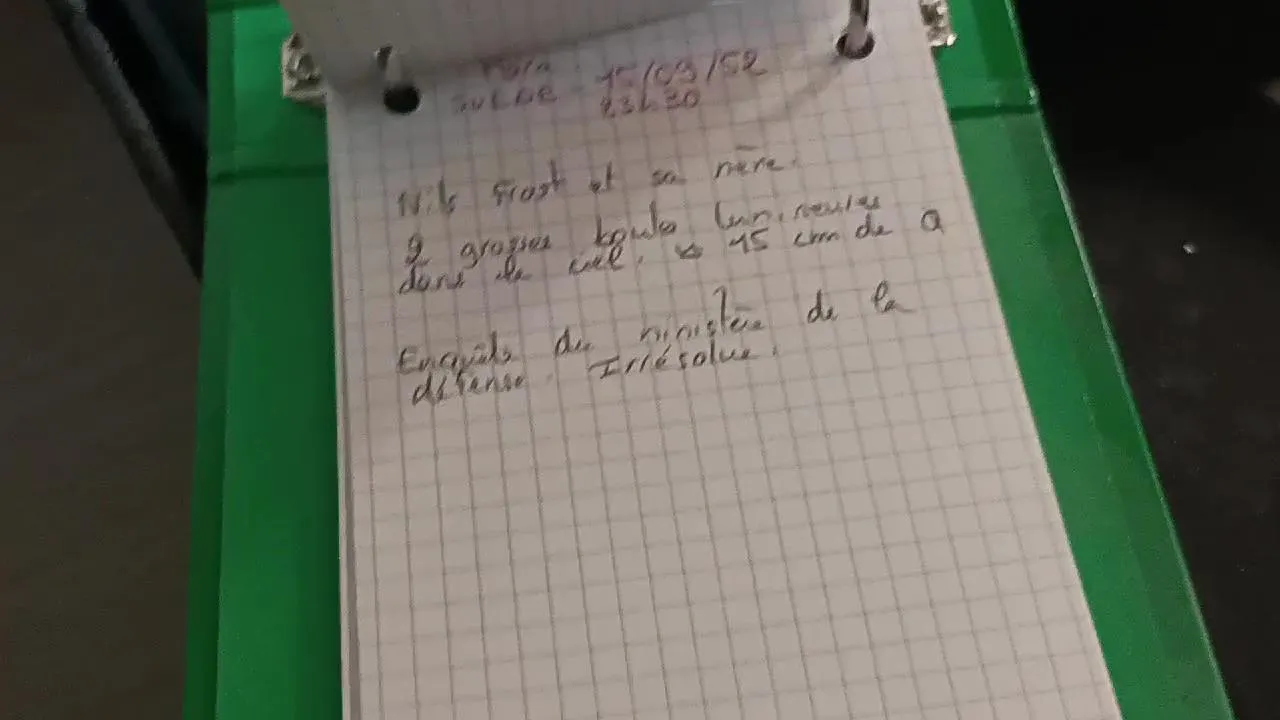 15/09/52
SUEDE 23h30
Nils Frost et sa mère.
2 grosses boules lumineuses
dans le ciel. 15 cm de
Enquête du ministère de la
défense. Irrésolue.